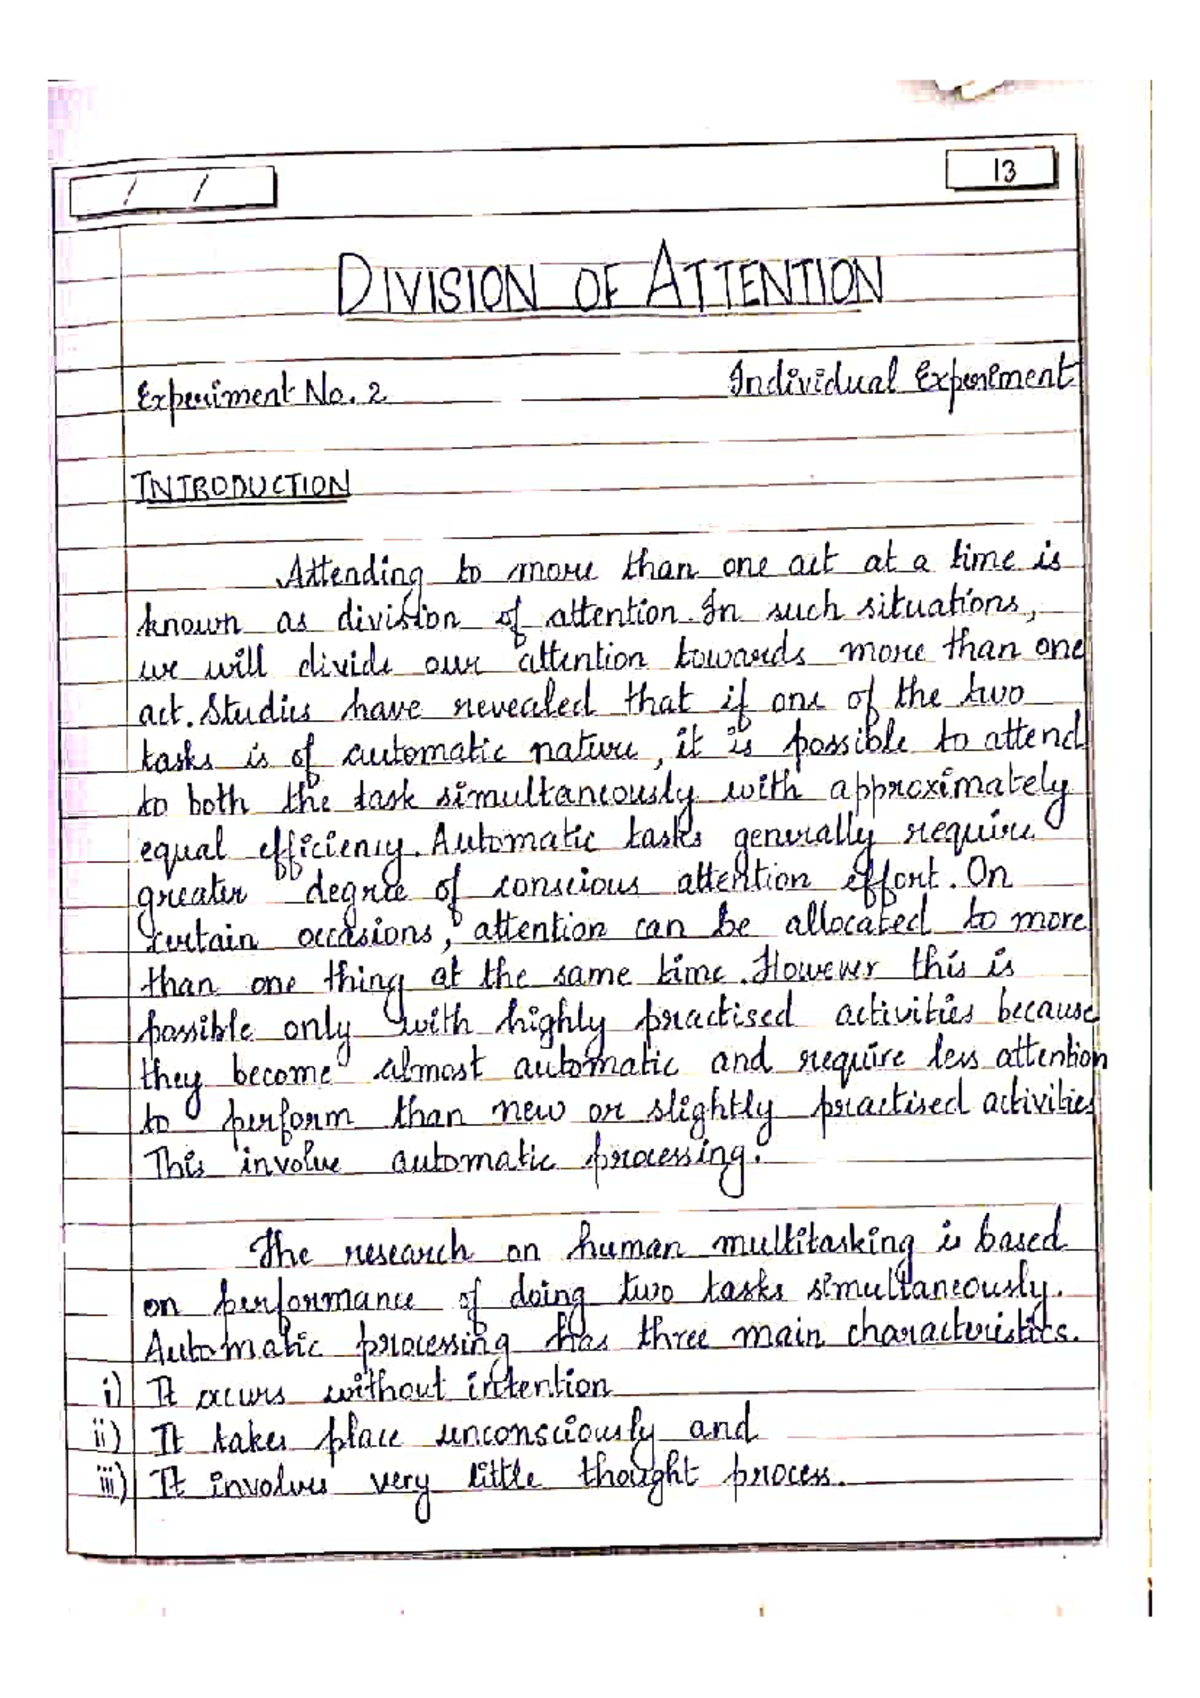 / /
13
DIVISION OF ATTENTION
Experiment No. 2
Individual Experiment
INTRODUCTION
Attending to more than one act at a time is
known as division of attention. In such situations,
we will divide our attention towards more than one
act. Studies have revealed that if one of the two
tasks is of automatic nature, it is possible to attend
to both the task simultaneously with approximately
equal efficiency. Automatic tasks generally require
greater degree of conscious attention effort. On
certain occasions, attention can be allocated to more
than one thing at the same time. However this is
possible only with highly practised activities because
they become almost automatic and require less attention
to perform than new or slightly practised activities
This involve automatic processing.
The research on human multitasking is based
on performance of doing two tasks simultaneously.
Automatic processing has three main characteristics.
i) It occurs without intention
ii) It takes place unconsciously and
iii) It involves very little thought process.